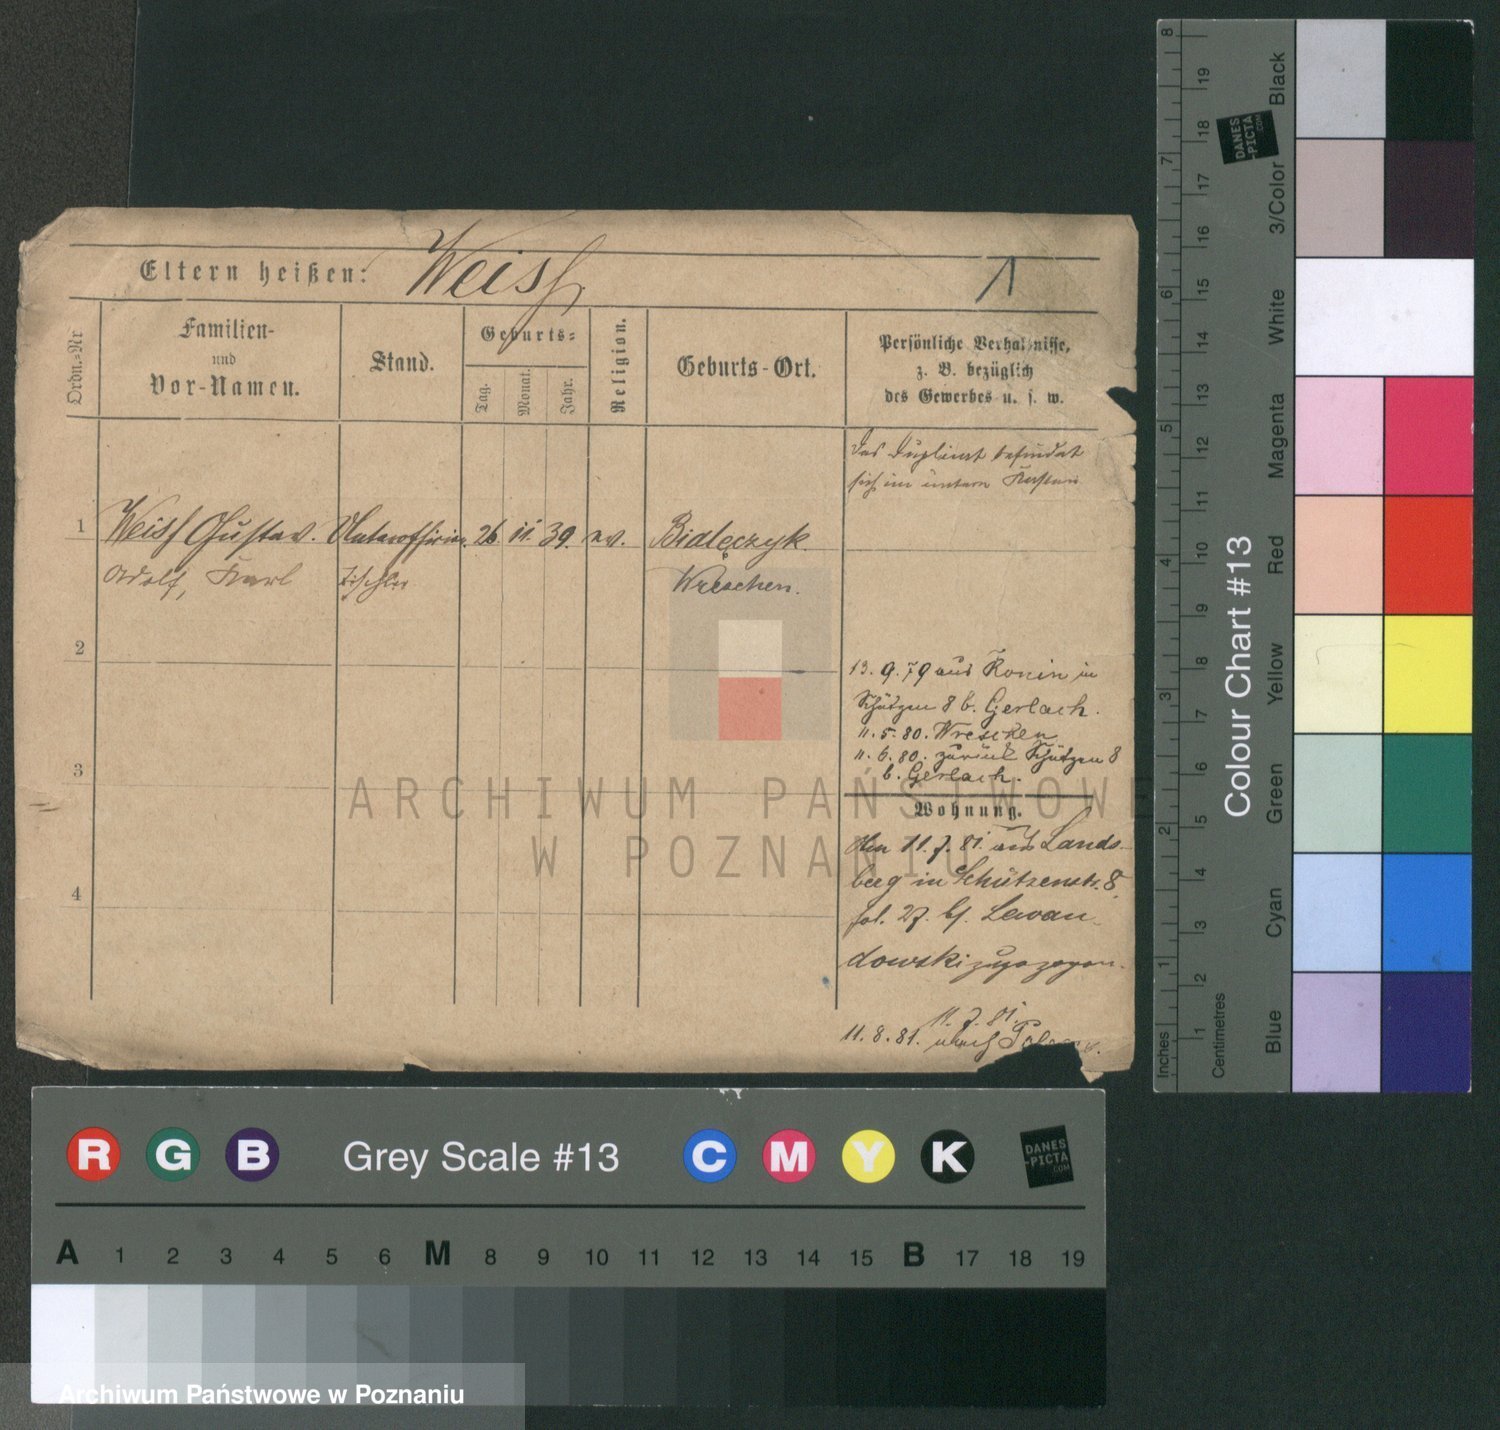 Eltern heißen: Weiss
1
Ordn.=Nr
Familien-
und
Vor-Namen.
Stand.
Geburts=
Tag.
Monat.
Jahr.
Religion.
Geburts-Ort.
Persönliche Verhältnisse,
z. B. bezüglich
des Gewerbes u. s. w.
Das Duplicat befindet
sich im untern Kasten
1 Weiss Gustav. Unteroffizier. 26 11. 39. ev. Bialęczyk.
Adolf, Karl Tischler Wreschen.
2
3
4
13. 9. 79 aus Konin in
Schützen 8 b. Gerlach.
11. 5. 80. Wreschen
11. 6. 80. zurück Schützen 8
b. Gerlach.
Wohnung.
Am 11. 7. 81. aus Lands-
berg in Schützenstr. 8
fol. 27. bf. Lewan-
dowski zugezogen.
11. 7. 81.
11. 8. 81. nach
ARCHIWUM PAŃSTWOWE
W POZNANIU
Inches
1 2 3 4 5 6 7 8
Centimetres
1 2 3 4 5 6 7 8 9 10 11 12 13 14 15 16 17 18 19
Colour Chart #13
Blue
Cyan
Green
Yellow
Red
Magenta
White
3/Color
Black
DANES
-PICTA
.COM
R G B Grey Scale #13 C M Y K
DANES
-PICTA
.COM
A 1 2 3 4 5 6 M 8 9 10 11 12 13 14 15 B 17 18 19
Archiwum Państwowe w Poznaniu